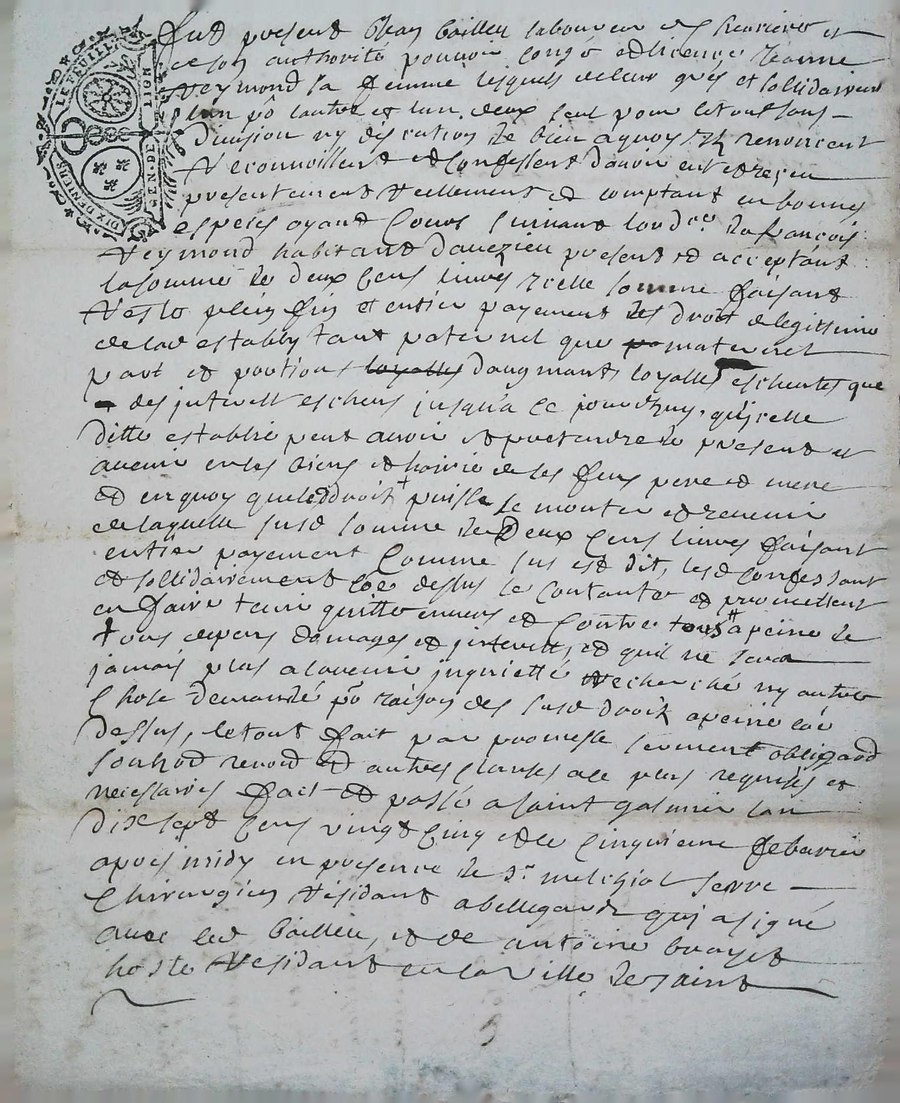 LE FEUILLE
GEN. DE LION
DIX DENIERS
Fut present Jean bailleu laboureur et
de son authorité pouvoir congé et licence Jeanne
reymond sa femme lesquels de leur gres et sollidairement
lun po lautre et lun deux seul pour le tout sans
division ny discution de bien a quoy ilz renoncent
reconnoissent et confessent davoir eu et reçeu
presentement reellement et comptant en bonnes
especes ayant cours suivant lord.ce de françois
reymond habitant daveizieu present et acceptant
la somme de deux cens livres icelle somme faisant
reste plein fin et entier payement des droit de legittime
de lad establye tant paternel que maternel
part et portions daugmant loyalles escheutes que
des interest escheus jusqu'a ce jourdhuy, qu'icelle
ditte establie peut avoir et pretendre de present et
avenir en les biens et hoirie de ses feus pere et mere
et en quoy que led droit puisse se monter et revenir
de laquelle susd somme de deux cens livres faisant
entier payement comme sus est dit, lesd confessant
et sollidairement dessus se contante et promettent
en faire tenir quitte envers et contre tous a peine de
tous depens domages et interests, et quil ne sera
jamais plus a lavenir inquietté recherché ny autre
chose demandé po raison des susd droit a peine que
dessus, le tout fait par promesse serment obligaõd
renond et autres clauses a ce plus requises et
necessaires fait et passé a saint galmier lan
dix sept cens vingt cinq et le cinquieme febvrier
apres midy en presence de sr. melchiol serre
chirurgien résidant a bellegarde qui a signé
avec led bailleu, et de antoine
hoste residant en la ville de saint